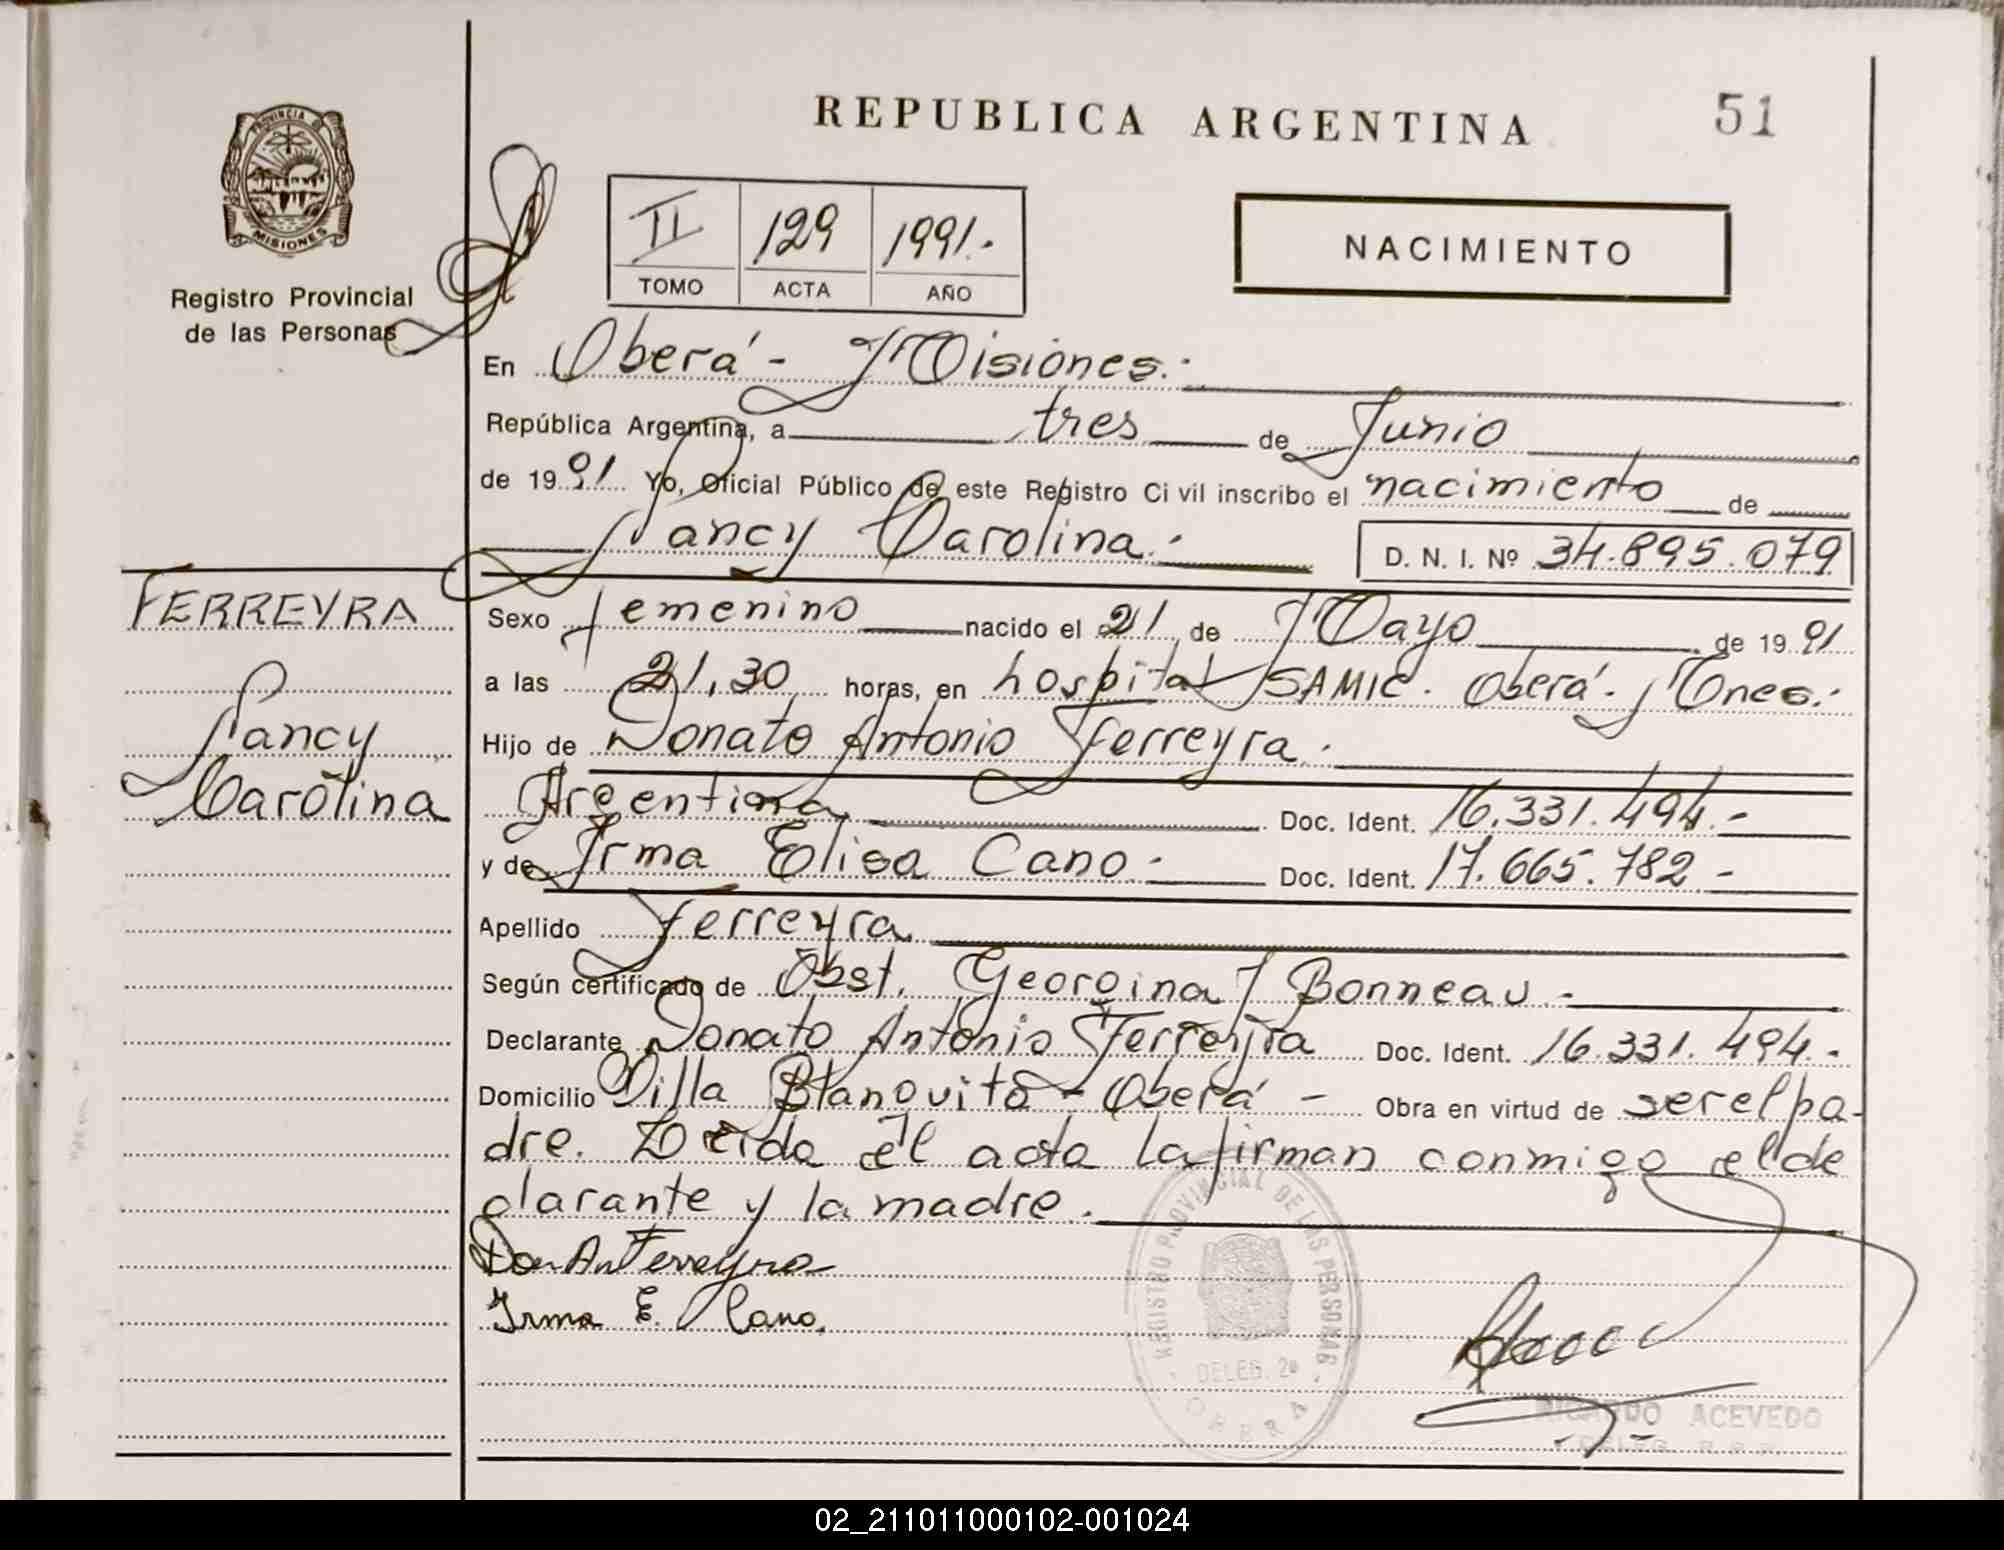 REPUBLICA ARGENTINA
51
PROVINCIA DE
MISIONES
Registro Provincial
de las Personas
II 129 1991.-
TOMO ACTA AÑO
NACIMIENTO
En Oberá - Misiones.-
República Argentina, a tres de Junio
de 1991 Yo, Oficial Público de este Registro Civil inscribo el nacimiento de
Nancy Carolina.-
D. N. I. Nº 34.895.079
FERREYRA
Nancy
Carolina
Sexo femenino nacido el 21 de Mayo de 1991
a las 21,30 horas, en hospital SAMIC. Oberá. Mnes.-
Hijo de Donato Antonio Ferreyra.
Argentina Doc. Ident. 16.331.494.-
y de Irma Elisa Cano.- Doc. Ident. 17.665.782 -
Apellido Ferreyra
Según certificado de Obst. Georgina J Bonneau.-
Declarante Donato Antonio Ferreyra Doc. Ident. 16.331.494.-
Domicilio Villa Blanquita - Oberá - Obra en virtud de ser el pa-
dre. Leida el acta la firman conmigo el de
clarante y la madre.
Don An Ferreyra
Irma E. Cano.
REGISTRO PROVINCIAL DE LAS PERSONAS
DELEG. 2a
OBERA
RICARDO ACEVEDO
DELEG. R.P.P.
02_211011000102-001024